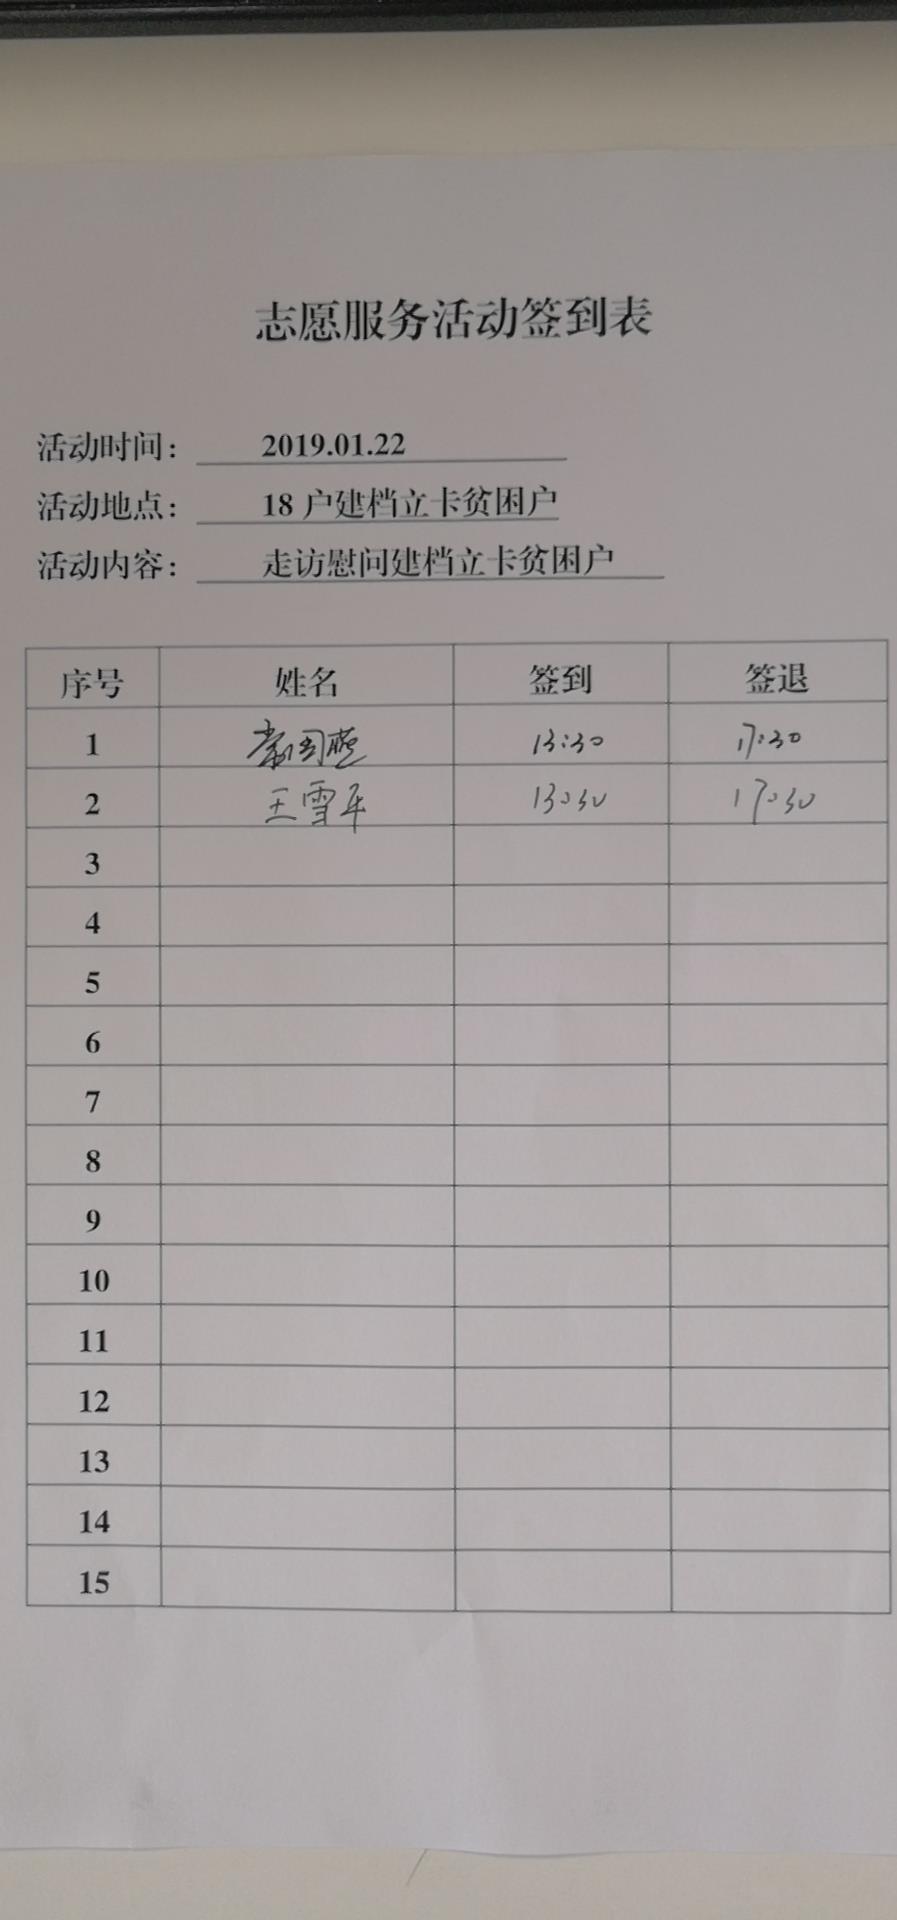 志愿服务活动签到表
活动时间： 2019.01.22
活动地点： 18 户建档立卡贫困户
活动内容： 走访慰问建档立卡贫困户
序号 姓名 签到 签退
1 13:30 17:30
2 王雪平 13:30 17:30
3
4
5
6
7
8
9
10
11
12
13
14
15